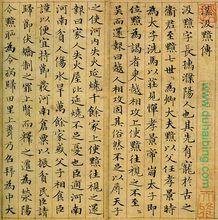 漢汲黯傳
汲黯字長孺濮陽人也其先有寵於古之
衛君至黯七世世為卿大夫黯以父任孝景時
為太子洗馬以莊見憚孝景帝崩太子即
位黯為謁者東越相攻上使黯往視之不
至至吳而還報曰越人相攻固其俗然不足以辱天子
之使河內失火延燒千餘家上使黯往視之還
報曰家人失火屋比延燒不足憂也臣過河南
河南貧人傷水旱萬餘家或父子相食臣
謹以便宜持節發河南倉粟以振貧民臣請
歸節伏矯制之罪上賢而釋之遷為滎陽
令黯恥為令病歸田里上聞乃召拜為中大